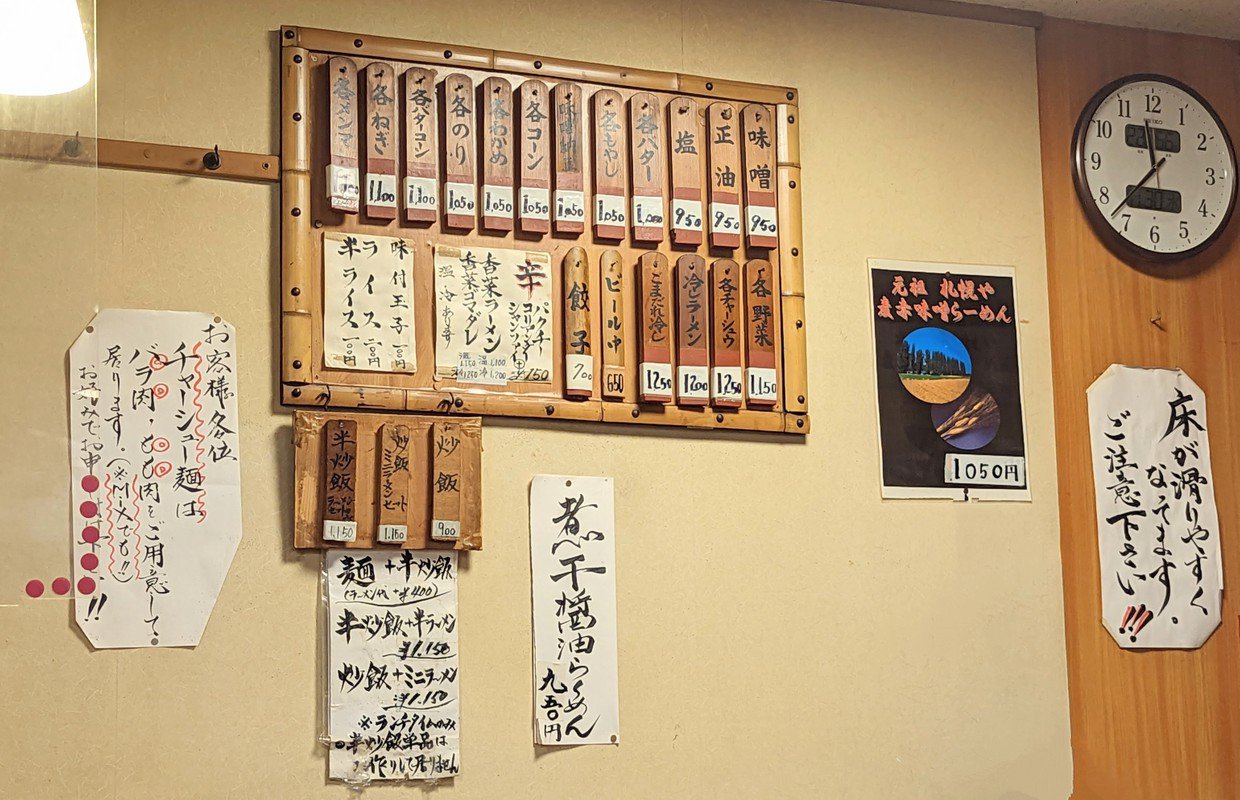 味噌
950
正油
950
塩
950
各バター
各もやし
1,050
1,050
各コーン
1,050
各わかめ
1,050
各のり
1,050
各バターコーン
1,100
各ねぎ
1,100
各メンマ
各野菜
1,150
各チャーシュウ
1,250
冷しラーメン
1200
ごまだれ冷し
1250
ビール中
650
餃子
700
辛
パクチー
¥150
香菜ラーメン
香菜ゴマダレ
温 冷あり〼
温 1,100
冷 1,200
味付玉子 一〇〇円
ライス 二〇〇円
半ライス 一〇〇円
炒飯
900
炒飯
ミニラーメンセット
1,150
半炒飯
1,150
麺+半炒飯
(ラーメン代+¥400)
半炒飯+半ラーメン
¥1,150
炒飯+ミニラーメン
¥1,150
※ランチタイムのみ
●半炒飯単品は
お作りして居りません
煮干醤油らーめん
九五〇円
お客様各位
チャーシュー麺は
バラ肉・もも肉をご用意して
居ります。(※MIXでも!!)
お好みでお申
!!
元祖 札幌や
麦赤味噌らーめん
1050円
床が滑りやすく
なってます。
ご注意下さい!!!
12
1
2
3
4
5
6
7
8
9
10
11
SEIKO